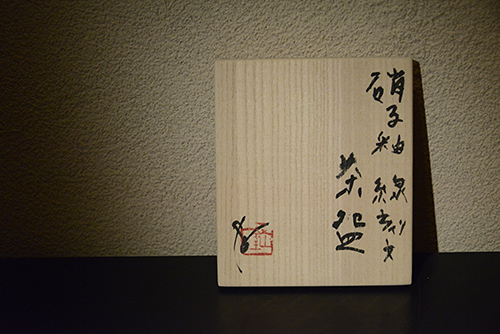 硝子釉線刻文
茶盌